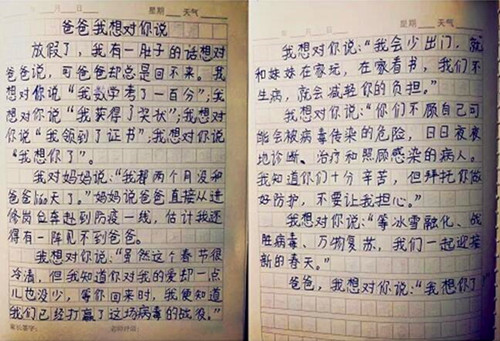 星期 天气
爸爸我想对你说
放假了，我有一肚子的话想对
爸爸说，可爸爸却总是回不来。我
想对你说“我数学考了一百分”；我
想对你说“我获得了奖状”；我想对
你说“我领到了证书”；我想对你说
“我想你了”。
我对妈妈说：“我帮两个月没和
爸爸聊天了。”妈妈说爸爸直接从进
修岗位奔赴到防疫一线，估计我还
得有一阵见不到爸爸。
我想对你说：“虽然这个春节很
冷清，但我知道你对我的爱却一点
儿也没少，等你回来时，我便知道
我们已经打赢了这场病毒的战役。”
家长签字： 老师评语：
星期 天气
我想对你说：“我会少出门，就
和妹妹在家玩，在家看书，我们不
生病，就会减轻你的负担。”
我想对你说：“你们不顾自己可
能会被病毒传染的危险，日日夜夜
地诊断、治疗和照顾感染的病人。
我知道你们十分辛苦，但拜托你做
好防护，不要让我担心。”
我想对你说：“等冰雪融化、战
胜病毒、万物复苏，我们一起迎接
新的春天。”
爸爸，我想对你说：“我想你了